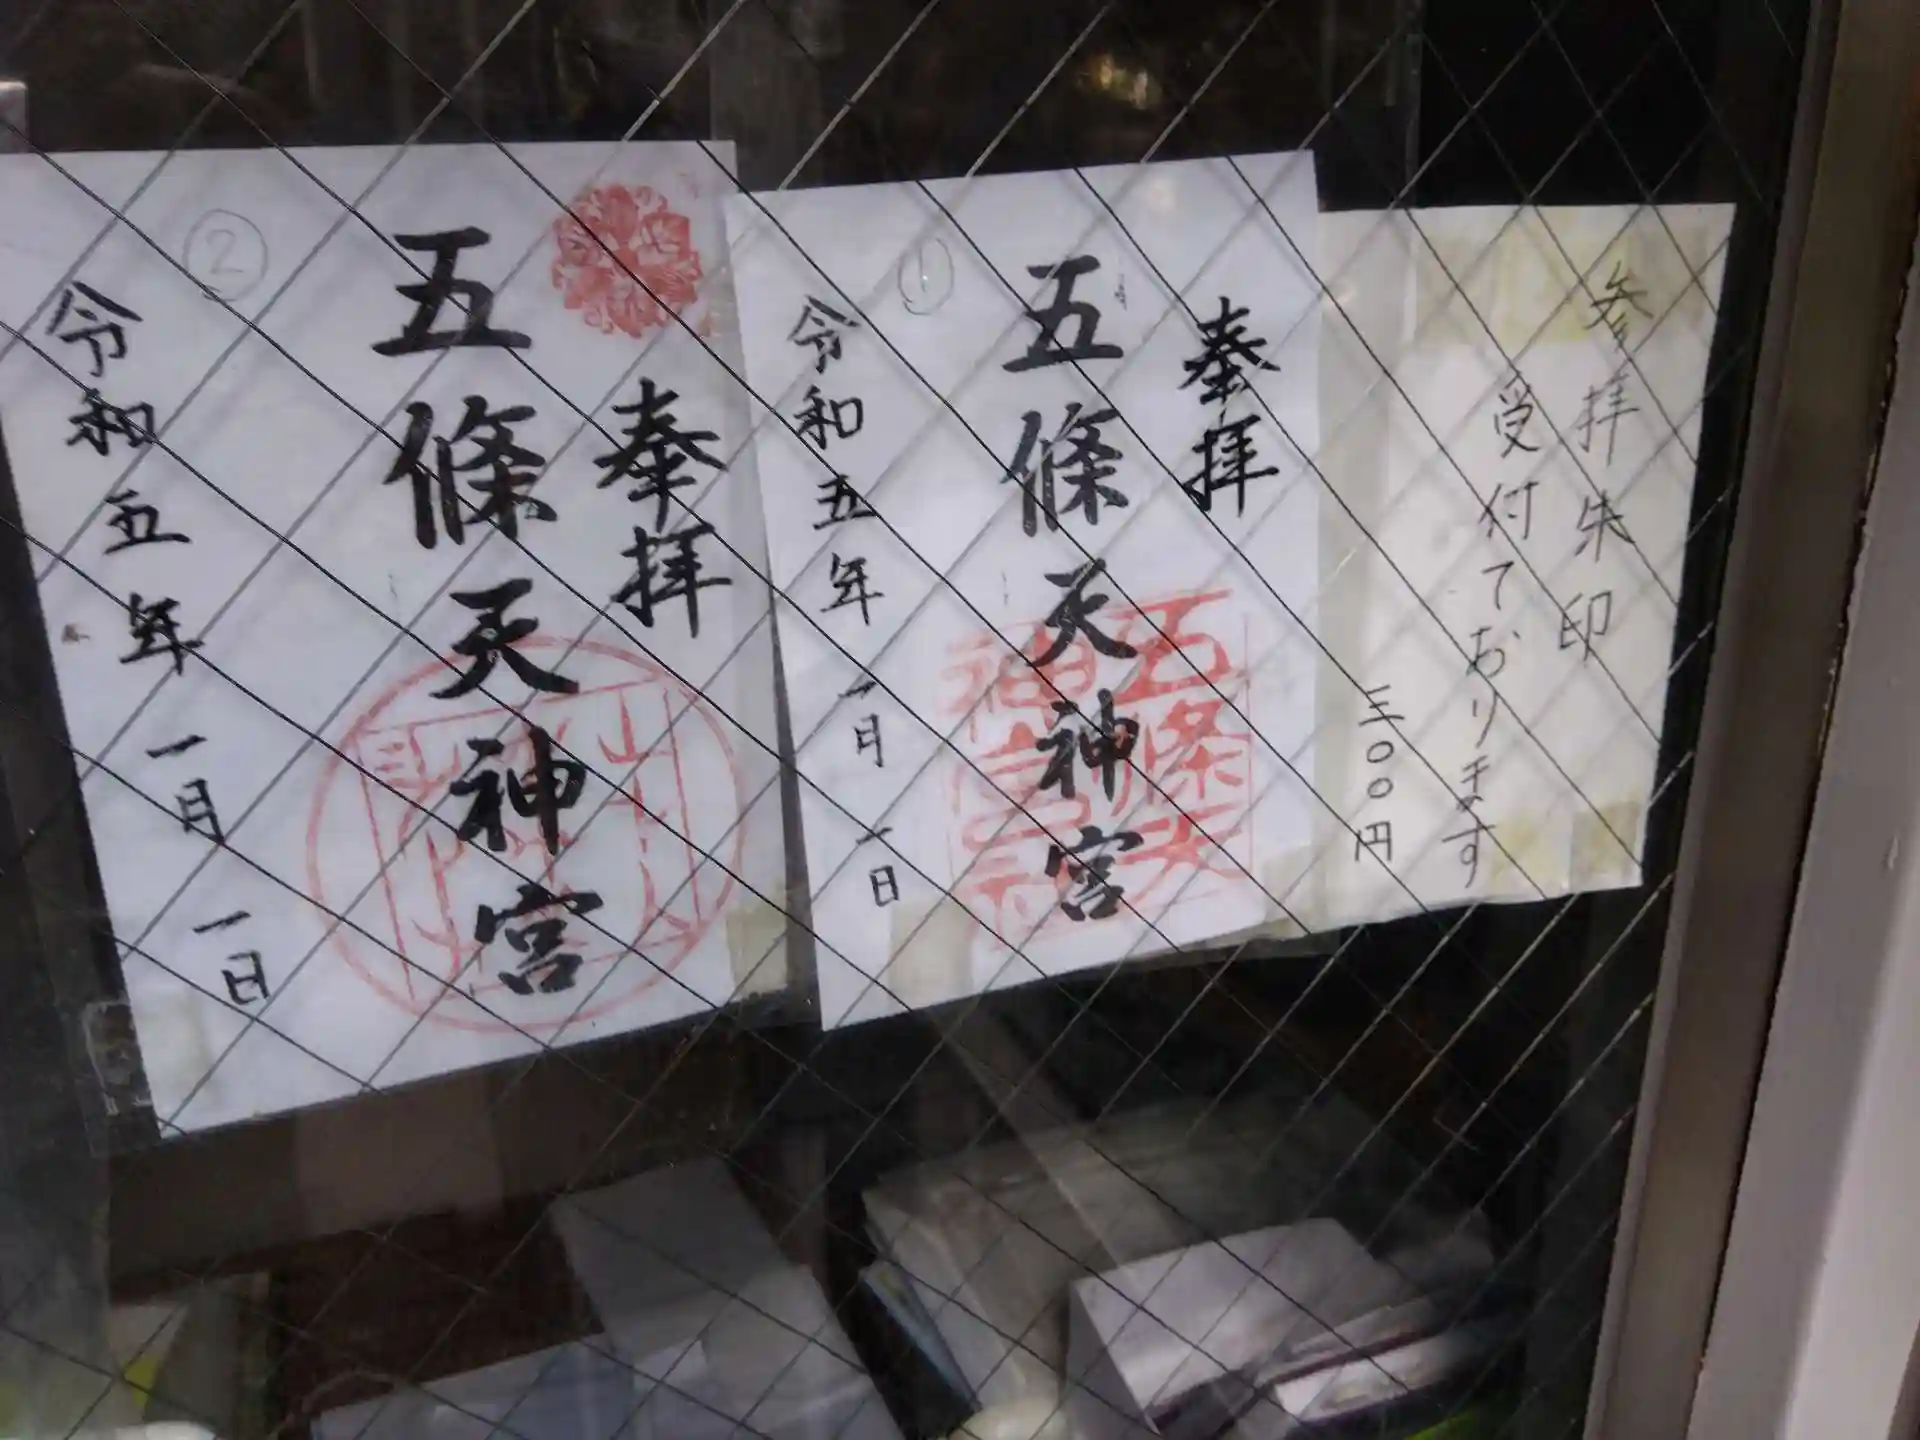 参拝朱印
受付ております
三〇〇円
①
奉拝
五條天神宮
令和五年一月一日
②
奉拝
五條天神宮
令和五年一月一日